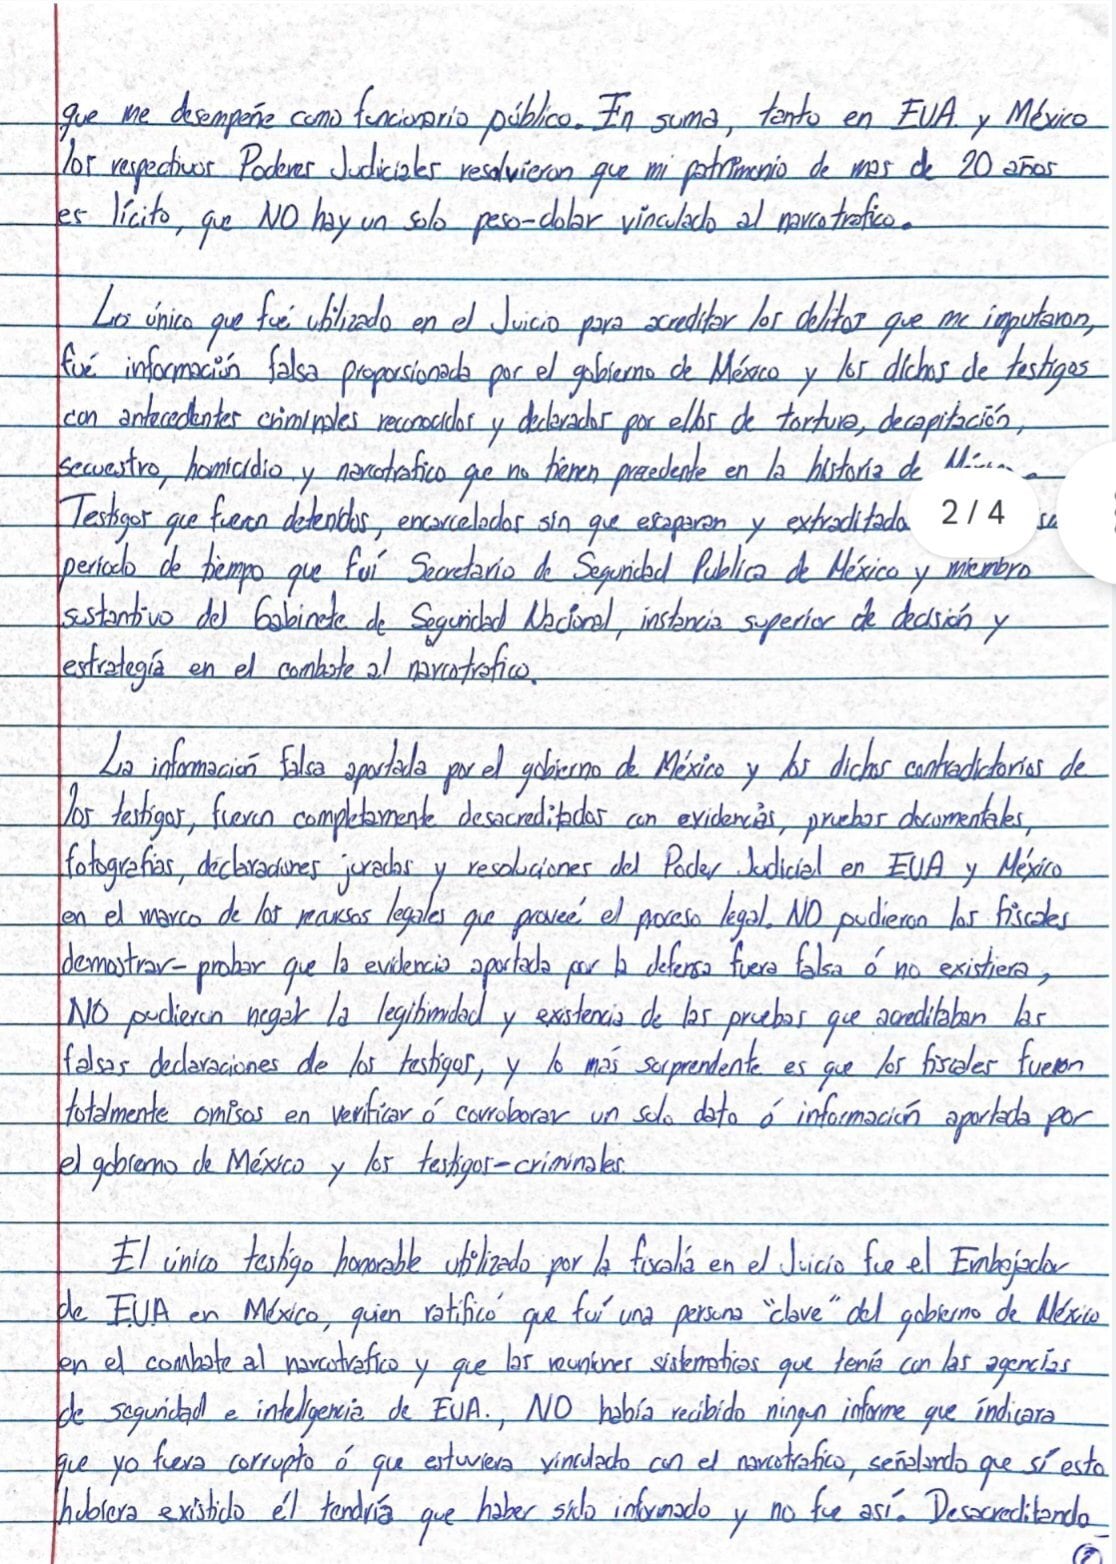 que me desempeñe como funcionario público. En suma, tanto en EUA. y México
los respectivos Poderes Judiciales resolvieron que mi patrimonio de mas de 20 años
es lícito, que NO hay un solo peso-dolar vinculado al narcotrafico.
Lo único que fué utilizado en el Juicio para acreditar los delitos que me imputaron,
fué información falsa proporsionada por el gobierno de México y los dichos de testigos
con antecedentes criminales reconocidos y declarados por ellos de tortura, decapitación,
secuestro, homicidio y narcotrafico que no tienen precedente en la historia de
Testigos que fueron detenidos, encarcelados sin que escaparan y extraditado
2 / 4
periodo de tiempo que fuí Secretario de Seguridad Publica de México y miembro
sustantivo del Gabinete de Seguridad Nacional, instancia superior de decisión y
estrategía en el combate al narcotrafico.
La información falsa aportada por el gobierno de México y los dichos contradictorios de
los testigos, fueron completamente desacreditados con evidencias, pruebas documentales,
fotografias, declaraciones juradas y resoluciones del Poder Judicial en EUA y México
en el marco de los recursos legales que proveé el proceso legal. NO pudieron los fiscales
demostrar-probar que la evidencia aportada por la defensa fuera falsa ó no existiera,
NO pudieron negar la legitimidad y existencia de las pruebas que acreditaban las
falsas declaraciones de los testigos, y lo más sorprendente es que los fiscales fueron
totalmente omisos en verificar ó corroborar un solo dato ó información aportada por
el gobierno de México y los testigos-criminales.
El único testigo honorable utilizado por la fiscalía en el Juicio fue el Embajador
de EUA en México, quien ratificó que fuí una persona "clave" del gobierno de México
en el combate al narcotrafico y que las reuniones sistematicas que tenía con las agencias
de seguridad e inteligencia de EUA., NO había recibido ningun informe que indicara
que yo fuera corrupto ó que estuviera vinculado con el narcotrafico, señalando que sí esto
hubiera existido él tendría que haber sido informado y no fue así. Desacreditando